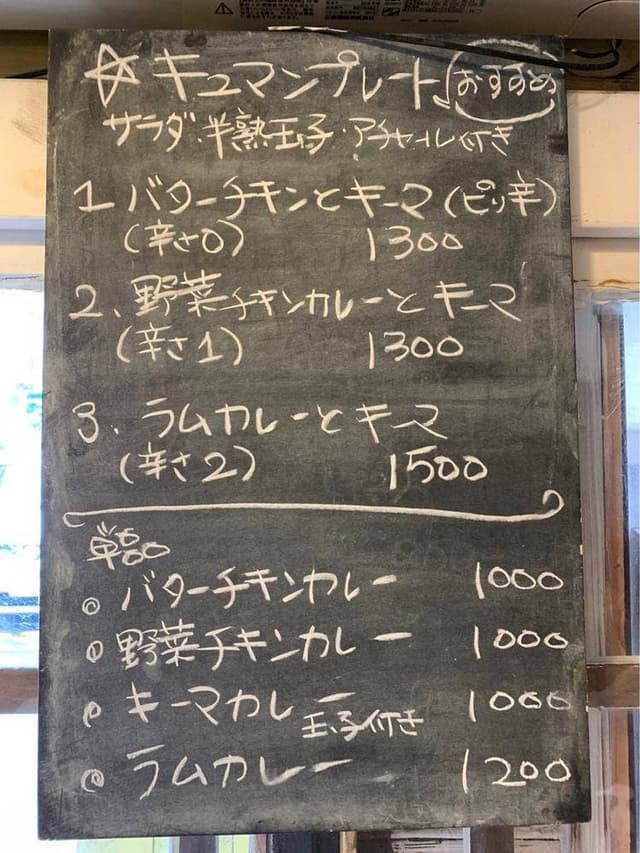 ☆キュマンプレート(おすすめ)
サラダ・半熟玉子・アチャール付き
1 バターチキンとキーマ(ピリ辛)
(辛さ0) 1300
2、野菜チキンカレーとキーマ
(辛さ1) 1300
3、ラムカレーとキーマ
(辛さ2) 1500
単品
◎バターチキンカレー 1000
◎野菜チキンカレー 1000
◎キーマカレー 玉子付き 1000
◎ラムカレー 1200